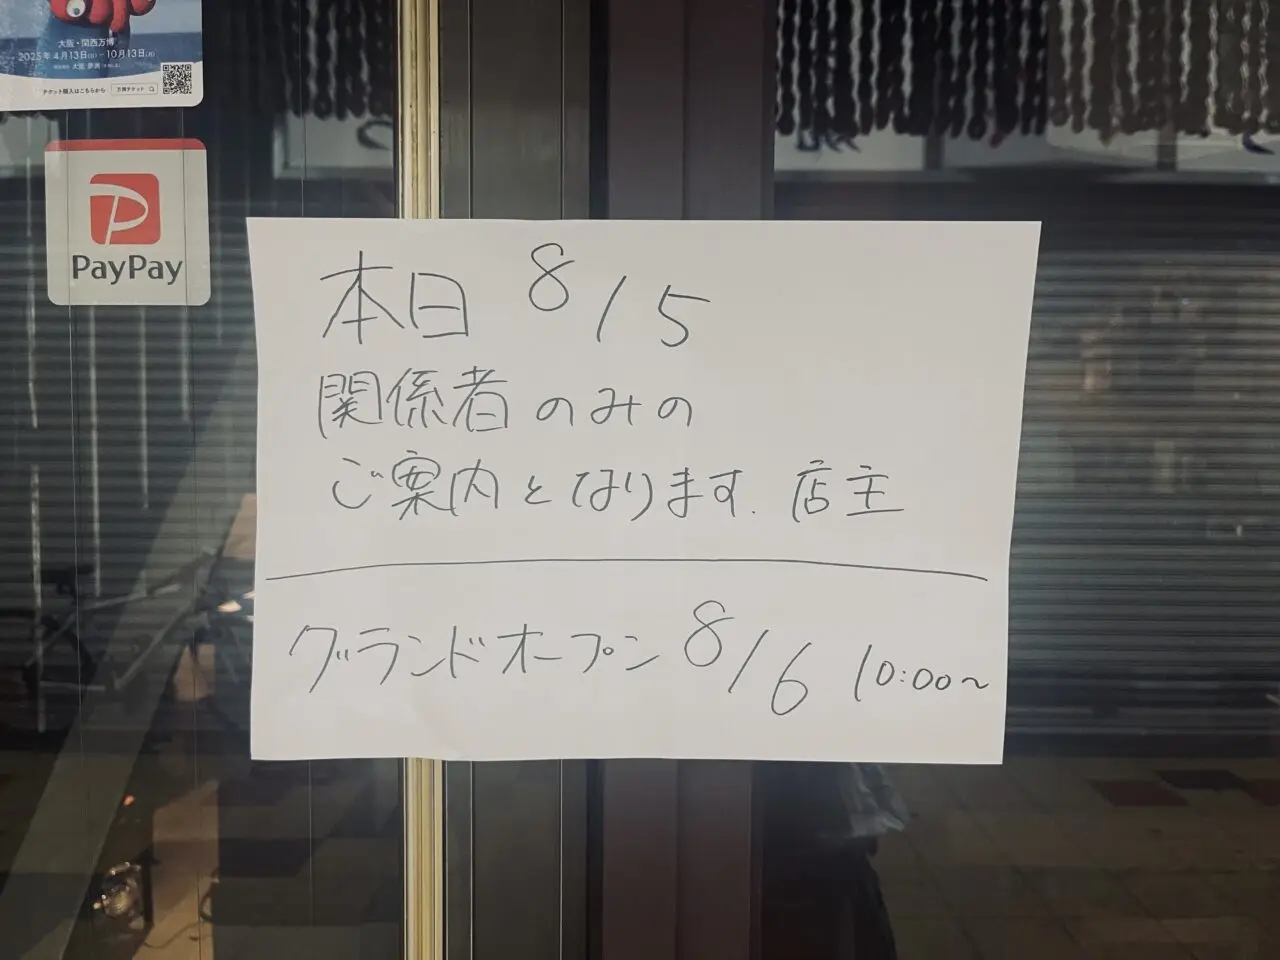 大阪・関西万博
2025年4月13日(日)－10月13日(月)
チケット購入はこちらから 万博チケット
PayPay
本日 8/5
関係者のみの
ご案内となります. 店主
グランドオープン 8/6 10:00~